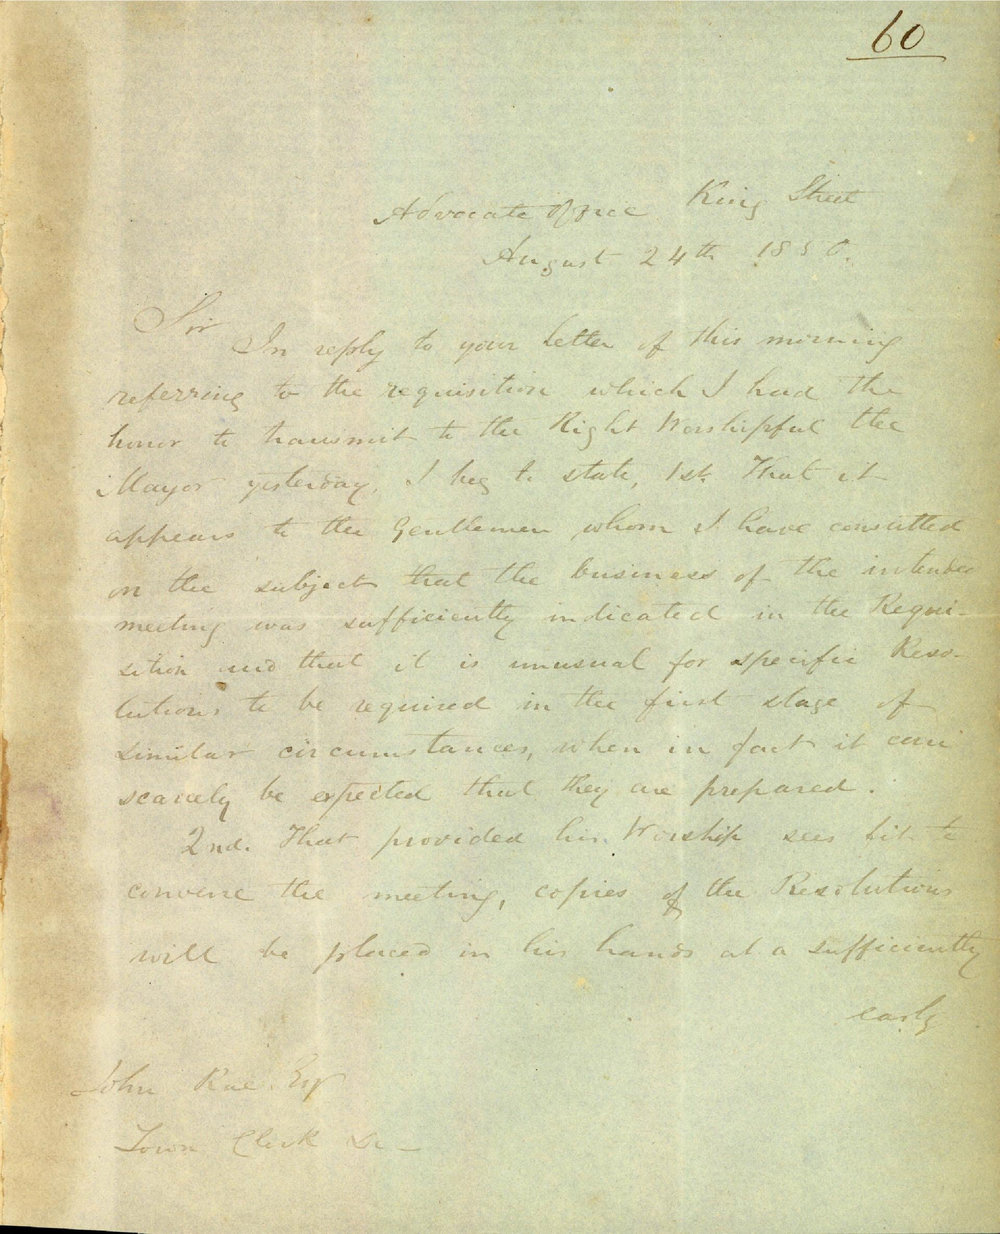 60
Advocate Office King Street
August 24th 1850.
Sir
In reply to your letter of this morning
referring to the requisition which I had the
honor to transmit to the Right Worshipful the
Mayor yesterday, I beg to state, 1st. That it
appears to the Gentlemen whom I have consulted
on the subject that the business of the intended
meeting was sufficiently indicated in the Requi-
sition and that it is unusual for specific Reso-
lutions to be required in the first stage of
similar circumstances, when in fact it can
scarcely be expected that they are prepared.
2nd. That provided his Worship sees fit to
convene the meeting, copies of the Resolutions
will be placed in his hands at a sufficiently
early
John Rae Esq
Town Clerk &c